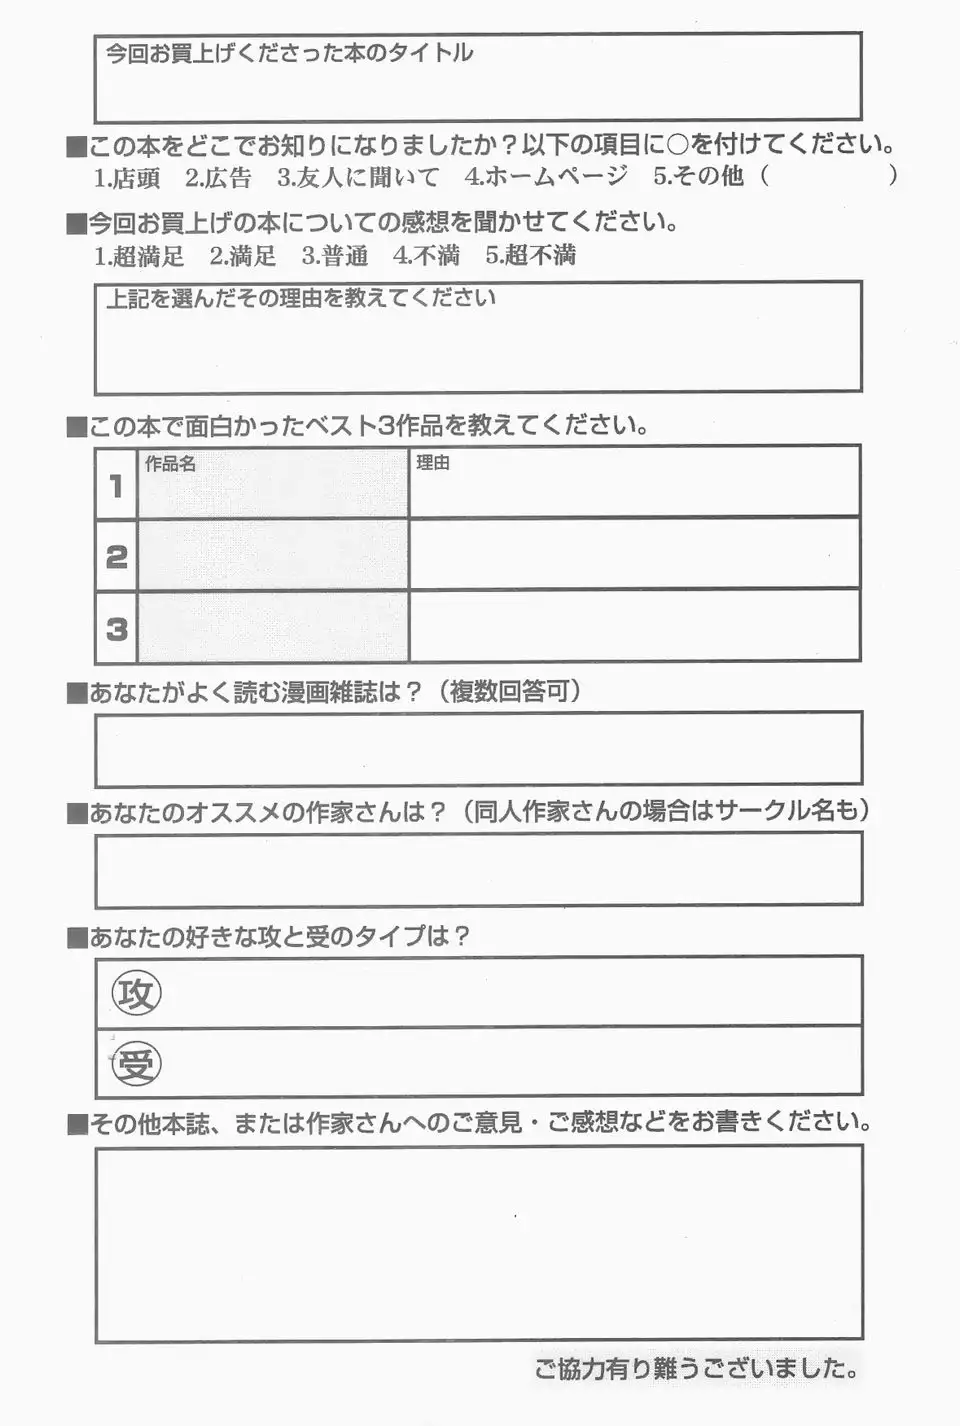 今回お買上げくださった本のタイトル
■この本をどこでお知りになりましたか？以下の項目に○を付けてください。
1.店頭　2.広告　3.友人に聞いて　4.ホームページ　5.その他（　　　　　）
■今回お買上げの本についての感想を聞かせてください。
1.超満足　2.満足　3.普通　4.不満　5.超不満
上記を選んだその理由を教えてください
■この本で面白かったベスト3作品を教えてください。
1 作品名 理由
2
3
■あなたがよく読む漫画雑誌は？（複数回答可）
■あなたのオススメの作家さんは？（同人作家さんの場合はサークル名も）
■あなたの好きな攻と受のタイプは？
攻
受
■その他本誌、または作家さんへのご意見・ご感想などをお書きください。
ご協力有り難うございました。